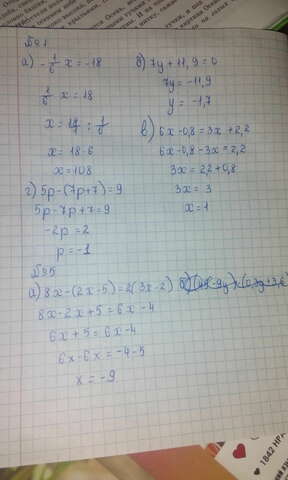 №91
а) - 1/6 x = -18
1/6 x = 18
x = 18 : 1/6
x = 18·6
x = 108
г) 5p-(7p+7)=9
5p-7p+7=9
-2p=2
p=-1
б) 7y+11,9=0
7y=-11,9
y=-1,7
в) 6x-0,8=3x+2,2
6x-0,8-3x=2,2
3x=2,2+0,8
3x=3
x=1
№95
а) 8x-(2x-5)=2(3x-2)
8x-2x+5=6x-4
6x+5=6x-4
6x-6x=-4-5
x=-9
1842 НРА